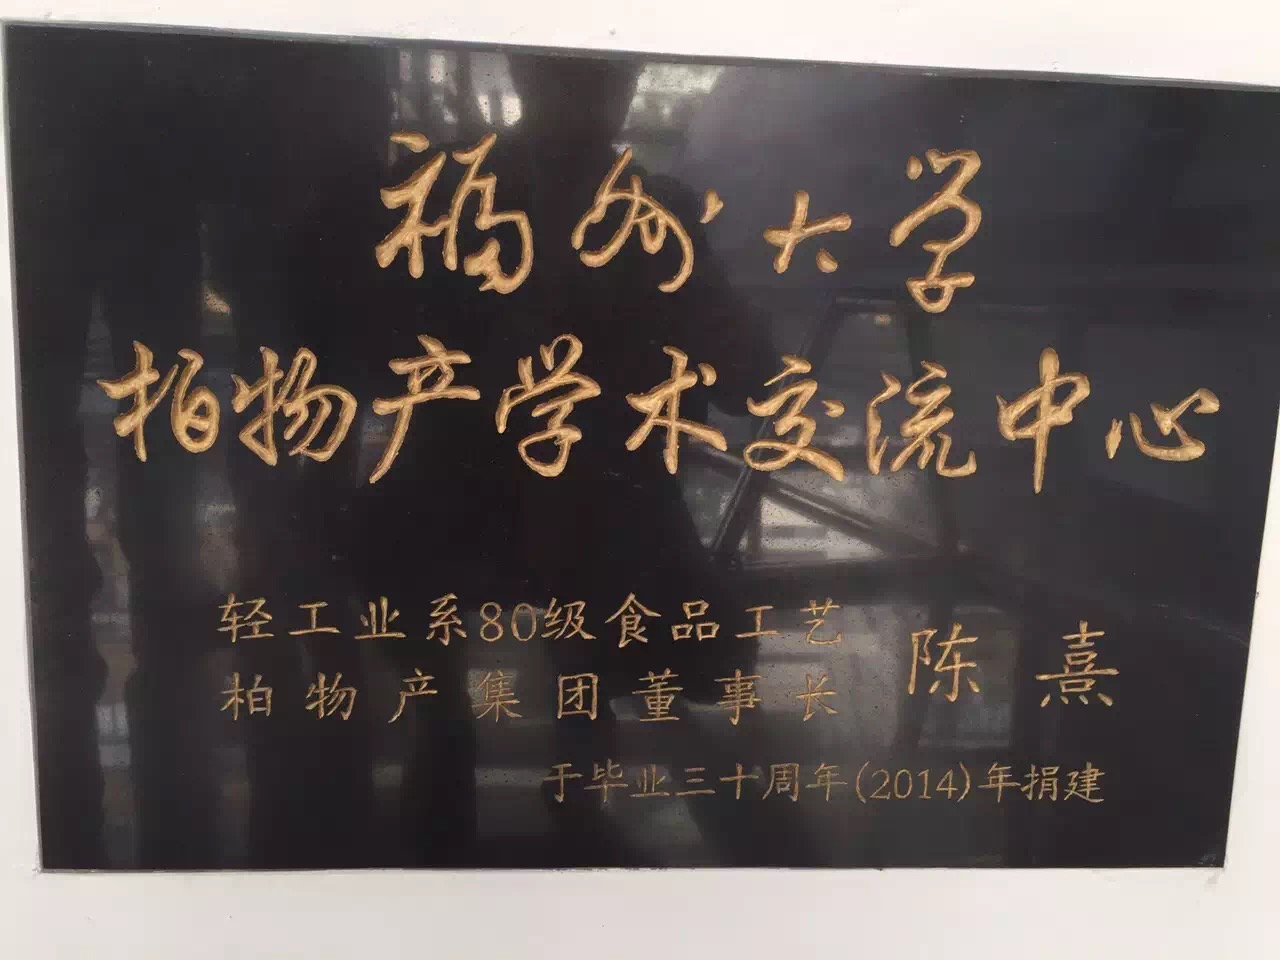 福州大学
柏物产学术交流中心
轻工业系80级食品工艺
柏物产集团董事长 陈熹
于毕业三十周年(2014)年捐建